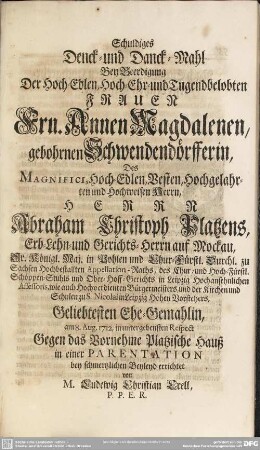 Schuldiges
Denck- und Danck-Mahl
Bey Beerdigung
Der Hoch Edlen, Hoch Ehr- und Tugendbelobten
FRAUEN
Frn. Annen Magdalenen,
gebohrnen Schwendendörfferin,
Des
MAGNIFICI, Hoch Edlen, Vesten, Hochgelahr-
ten und Hochweisen Herrn,
HERRN
Abraham Christoph Platzens,
Erb Lehn- und Gerichts-Herrn auf Mockau,
Sr. Königl. Maj. in Pohlen und Chur-Fürstl. Durchl. zu
Sachsen Hochbestallten Appellation-Raths, des Chur- und Hoch-Fürstl.
Schöppen-Stuhls und Ober-Hoff-Gerichts in Leipzig Hochansehnlichen
Assessoris, wie auch Hochverdienten Bürgermeisters und der Kirchen und
Schulen zu S. Nicolai in Leipzig Hohen Vorstehers,
Geliebtesten Ehe-Gemahlin,
am 8. Aug. 1722. in untergebensten Respect
Gegen das Vornehme Platzische Hauß
in einer PARENTATION
bey schmertzlichen Beyleyd errichtet
von
M. Ludewig Christian Crell,
P. P. E. R.